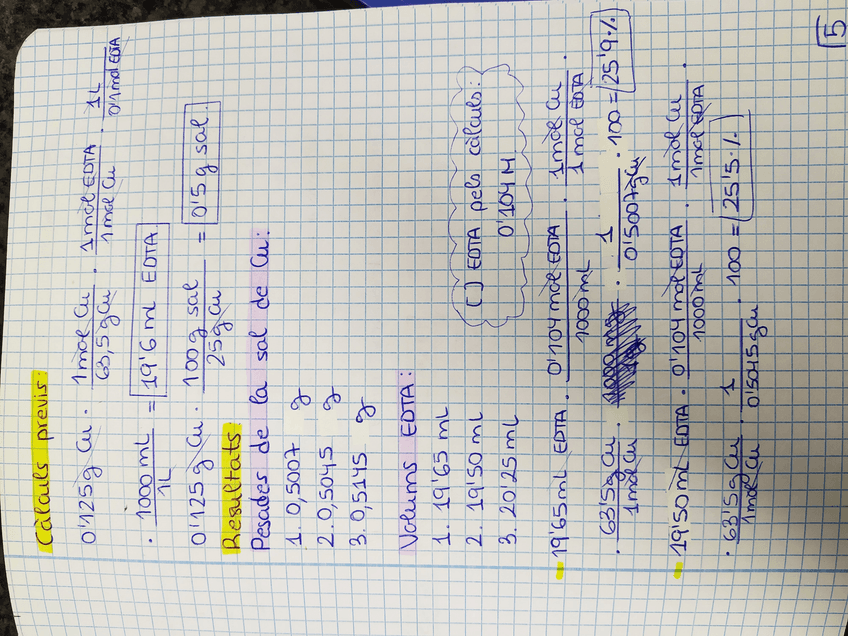 Càlculs previs:
0'125 g Cu · 1 mol Cu / 63,5 g Cu · 1 mol EDTA / 1 mol Cu · 1L / 0'1 mol EDTA
· 1000 mL / 1L = 19'6 mL EDTA
0'125 g Cu · 100 g sal / 25 g Cu = 0'5 g sal.
Resultats
Pesades de la sal de Cu:
1. 0,5007 g
2. 0,5045 g
3. 0,5145 g
Volums EDTA:
1. 19'65 mL
2. 19'50 mL
3. 20'25 mL
[] EDTA pels càlculs:
0'104 M
19'65 mL EDTA · 0'104 mol EDTA / 1000 mL · 1 mol Cu / 1 mol EDTA ·
· 63'5 g Cu / 1 mol Cu · 1 / 0'5007 g Cu · 100 = 25'9 %
19'50 mL EDTA · 0'104 mol EDTA / 1000 mL · 1 mol Cu / 1 mol EDTA ·
· 63'5 g Cu / 1 mol Cu · 1 / 0'5045 g Cu · 100 = 25'5 %
5